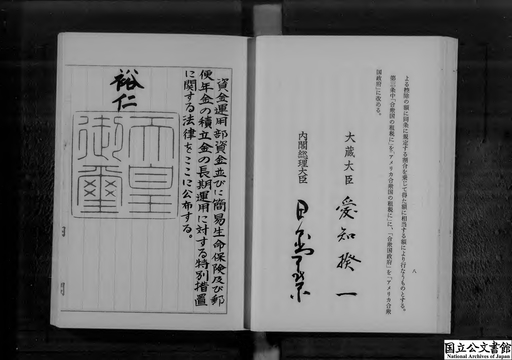 よる控除の額に同条に規定する割合を乗じて得た額に相当する額により行なうものとする。
第三条中「合衆国の租税に」を「アメリカ合衆国の租税に」に、「合衆国政府」を「アメリカ合衆
国政府」に改める。
八
大蔵大臣 愛知揆一
内閣総理大臣
資金運用部資金並びに簡易生命保険及び郵
便年金の積立金の長期運用に対する特別措置
に関する法律をここに公布する。
裕仁
天皇
御璽
国立公文書館
National Archives of Japan